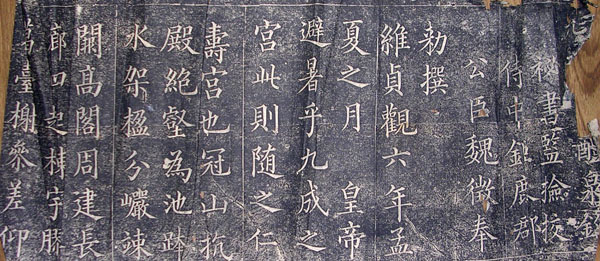 醴泉銘
秘書監撿挍
侍中鉅鹿郡
公臣魏徵奉
勑撰
維貞觀六年孟
夏之月 皇帝
避暑乎九成之
宮此則随之仁
壽宮也冠山抗
殿絶壑為池跨
水架楹分巖竦
闕高閣周建長
廊四起棟宇膠
葛臺榭參差仰